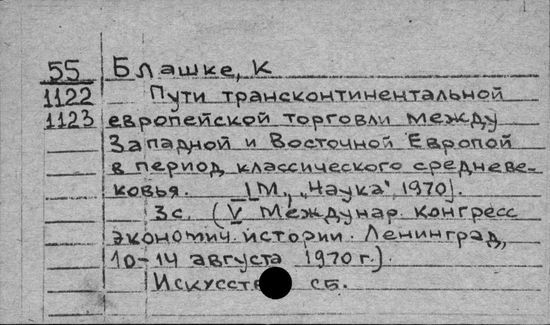 55 Блашке, К
1122 Пути трансконтинентальной
1123 европейской торговли между
Западной и Восточной Европой
в период классического средневе-
ковья. [М., „Наука", 1970].
3с. (V Междунар. конгресс
экономич. истории. Ленинград,
10-14 августа 1970 г.)
сб.